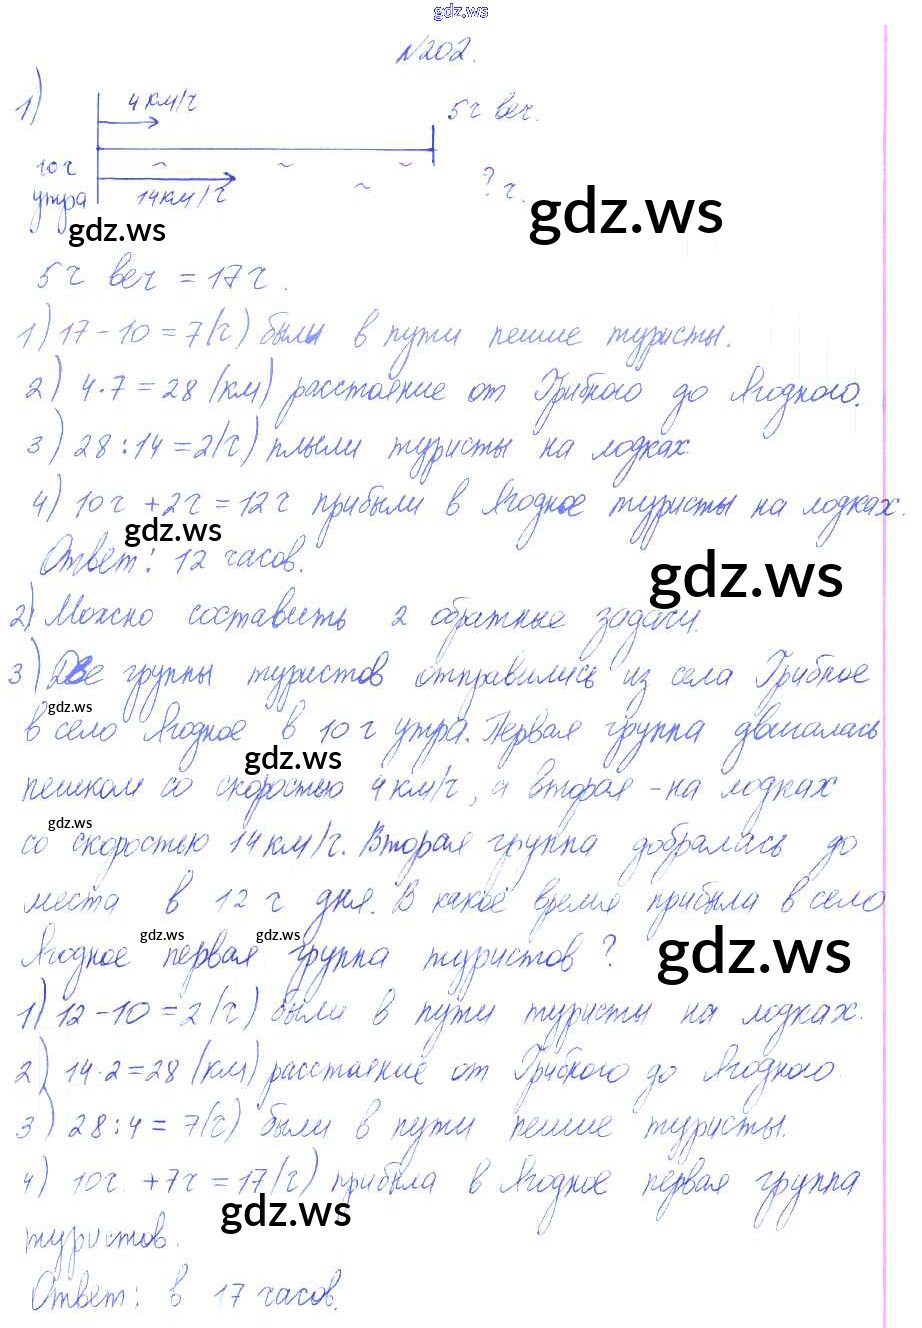 gdz.ws
№202.
1) 4 км/ч 5ч веч.
10ч утра 14км/ч ? ч.
gdz.ws
gdz.ws
5ч веч = 17ч.
1) 17-10=7(ч) были в пути пешие туристы.
2) 4·7=28 (км) расстояние от Грибного до Ягодного.
3) 28:14=2(ч) плыли туристы на лодках.
4) 10ч +2ч =12ч прибыли в Ягодное туристы на лодках.
gdz.ws
Ответ: 12 часов.
gdz.ws
2) Можно составить 2 обратные задачи.
3) Две группы туристов отправились из села Грибное
gdz.ws
в село Ягодное в 10 ч утра. Первая группа двигалась
gdz.ws
пешком со скоростью 4 км/ч, а вторая - на лодках
gdz.ws
со скоростью 14 км/ч. Вторая группа добралась до
места в 12 ч дня. В какое время прибыла в село
gdz.ws gdz.ws
Ягодное первая группа туристов?
gdz.ws
1) 12-10=2(ч) были в пути туристы на лодках.
2) 14·2=28 (км) расстояние от Грибного до Ягодного.
3) 28:4= 7(ч) были в пути пешие туристы.
4) 10ч. +7ч =17(ч) прибыла в Ягодное первая группа
gdz.ws
туристов.
Ответ: в 17 часов.